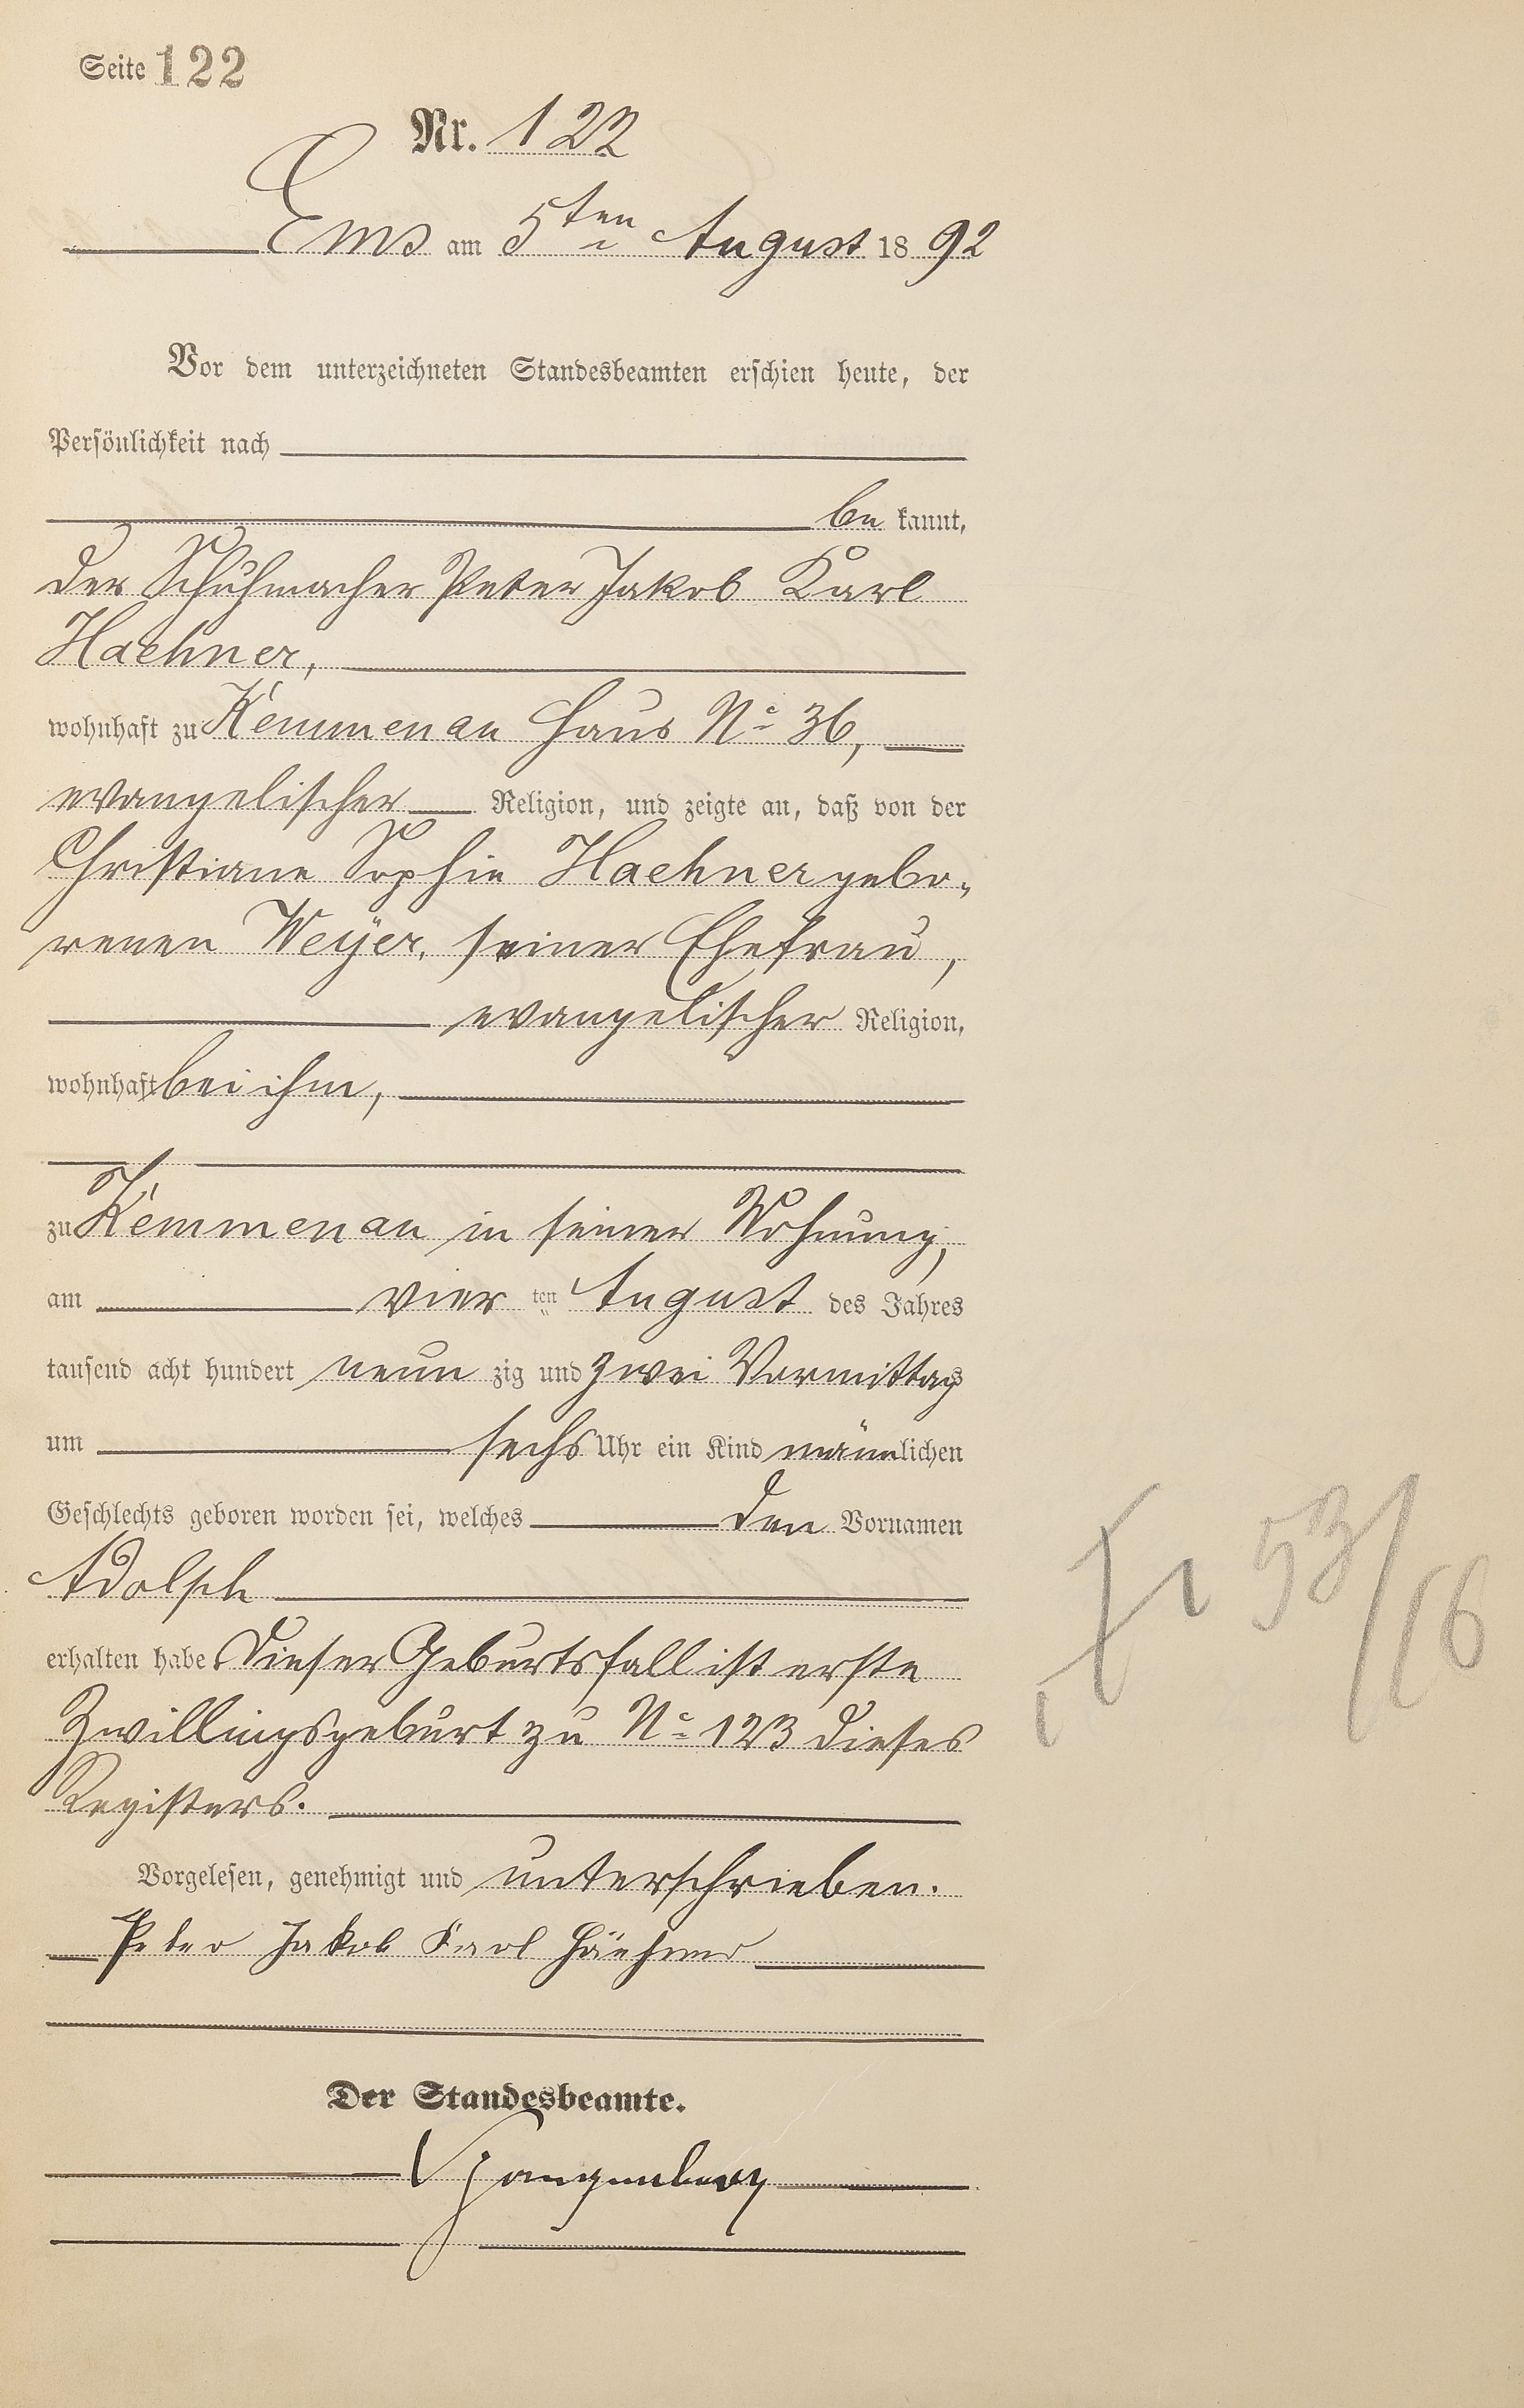 Seite 122
Nr. 122
Ems am 5ten August 1892
Vor dem unterzeichneten Standesbeamten erschien heute, der
Persönlichkeit nach
be kannt,
der Schuhmacher Peter Jakob Karl
Haehner,
wohnhaft zu Kemmenau Haus No 36,
evangelischer Religion, und zeigte an, daß von der
Christiane Sophie Haehner gebo-
renen Weÿer, seiner Ehefrau,
evangelischer Religion,
wohnhaft bei ihm,
zu Kemmenau in seiner Wohnung,
am vier ten August des Jahres
tausend acht hundert neun zig und zwei Vormittags
um sechs Uhr ein Kind männlichen
Geschlechts geboren worden sei, welches den Vornamen
Adolph
erhalten habe. Dieser Geburtsfall ist erste
Zwillingsgeburt zu No 123 dieses
Registers.
Vorgelesen, genehmigt und unterschrieben.
Peter Jakob Karl Häehner
Der Standesbeamte.
53/16